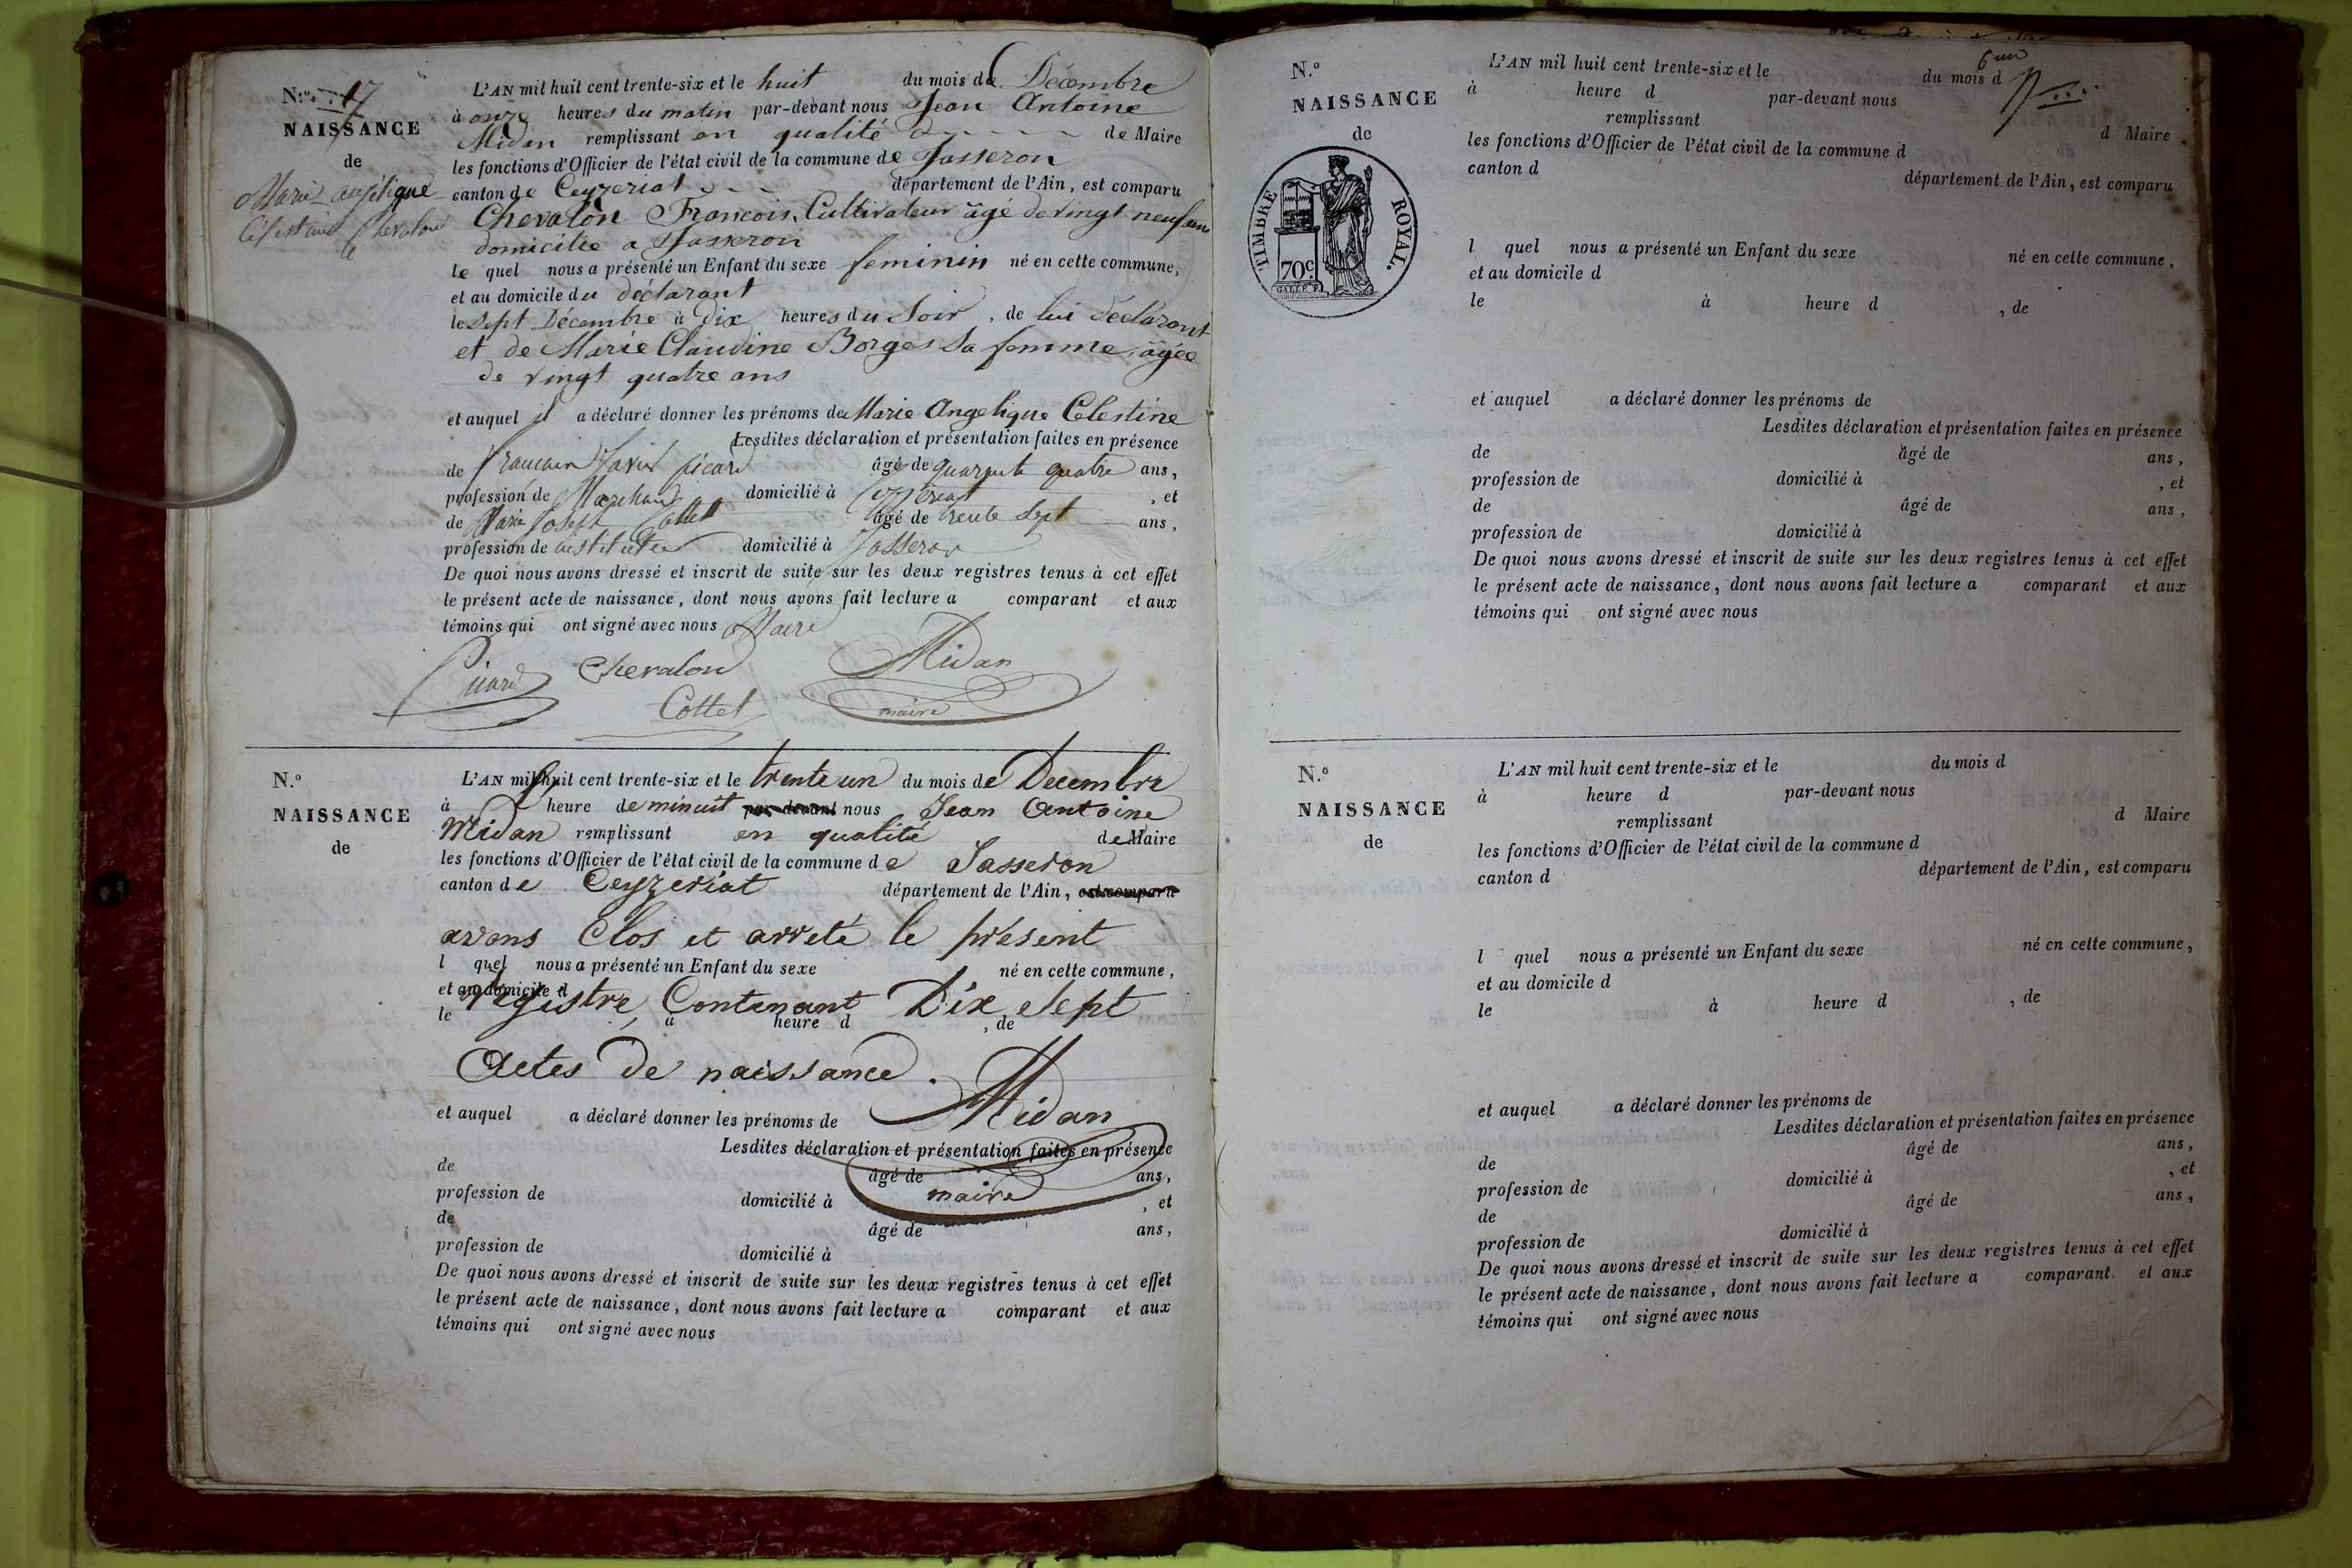 N.º 17
NAISSANCE
de
Marie angélique
Célestine Chevalon
L'AN mil huit cent trente-six et le huit du mois de Décembre
à onze heures du matin par-devant nous Jean Antoine
Midan remplissant en qualité de Maire
les fonctions d'Officier de l'état civil de la commune de Jasseron
canton de Ceyzeriat département de l'Ain, est comparu
Chevalon François, Cultivateur âgé de vingt neuf ans
domicilié a Jasseron
le quel nous a présenté un Enfant du sexe feminin né en cette commune,
et au domicile du déclarant
le sept Décembre à dix heures du Soir, de lui déclarant
et de Marie Claudine Borges sa femme, âgée
de vingt quatre ans
et auquel il a déclaré donner les prénoms de Marie Angelique Celestine
Lesdites déclaration et présentation faites en présence
de picard âgé de quarante quatre ans,
profession de Marchand domicilié à Ceyzériat, et
de Marie Joseph Cottet âgé de trente sept ans,
profession de instituteur domicilié à Jasseron
De quoi nous avons dressé et inscrit de suite sur les deux registres tenus à cet effet
le présent acte de naissance, dont nous avons fait lecture a comparant et aux
témoins qui ont signé avec nous Maire
Picard Chevalon Midan
Cottet maire
N.º
NAISSANCE
de
L'AN mil huit cent trente-six et le trente un du mois de Decembre
à heure de minuit par-devant nous Jean Antoine
Midan remplissant en qualité de Maire
les fonctions d'Officier de l'état civil de la commune de Jasseron
canton de Ceyzeriat département de l'Ain, est comparu
avons Clos et arreté le présent
l quel nous a présenté un Enfant du sexe né en cette commune,
et au domicile d
registre, Contenant Dix Sept
le à heure d , de
Actes de naissance.
Midan
et auquel a déclaré donner les prénoms de
Lesdites déclaration et présentation faites en présence
de âgé de ans,
maire
profession de domicilié à , et
de âgé de ans,
profession de domicilié à
De quoi nous avons dressé et inscrit de suite sur les deux registres tenus à cet effet
le présent acte de naissance, dont nous avons fait lecture a comparant et aux
témoins qui ont signé avec nous
N.º
NAISSANCE
de
TIMBRE ROYAL.
70c.
L'AN mil huit cent trente-six et le du mois d
à heure d par-devant nous
remplissant d Maire
les fonctions d'Officier de l'état civil de la commune d
canton d département de l'Ain, est comparu
l quel nous a présenté un Enfant du sexe né en cette commune,
et au domicile d
le à heure d , de
et auquel a déclaré donner les prénoms de
Lesdites déclaration et présentation faites en présence
de âgé de ans,
profession de domicilié à , et
de âgé de ans,
profession de domicilié à
De quoi nous avons dressé et inscrit de suite sur les deux registres tenus à cet effet
le présent acte de naissance, dont nous avons fait lecture a comparant et aux
témoins qui ont signé avec nous
N.º
NAISSANCE
de
L'AN mil huit cent trente-six et le du mois d
à heure d par-devant nous
remplissant d Maire
les fonctions d'Officier de l'état civil de la commune d
canton d département de l'Ain, est comparu
l quel nous a présenté un Enfant du sexe né en cette commune,
et au domicile d
le à heure d , de
et auquel a déclaré donner les prénoms de
Lesdites déclaration et présentation faites en présence
de âgé de ans,
profession de domicilié à , et
de âgé de ans,
profession de domicilié à
De quoi nous avons dressé et inscrit de suite sur les deux registres tenus à cet effet
le présent acte de naissance, dont nous avons fait lecture a comparant et aux
témoins qui ont signé avec nous